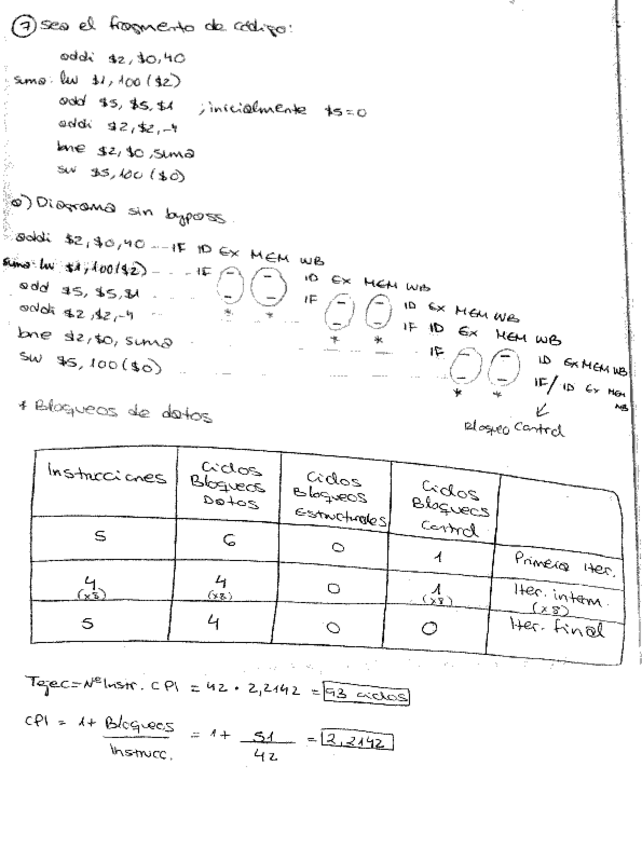 ⑦ sea el fragmento de código:
addi $2, $0, 40
suma: lw $1, 100($2)
add $5, $5, $1 ; inicialmente $5=0
addi $2, $2, -4
bne $2, $0, suma
sw $5, 100($0)
a) Diagrama sin bypass.
addi $2, $0, 40 --- IF ID EX MEM WB
suma: lw $1, 100($2) - - - IF - - ID EX MEM WB
add $5, $5, $1 IF - - ID EX MEM WB
addi $2, $2, -4 IF ID EX MEM WB
bne $2, $0, suma IF - - ID EX MEM WB
sw $5, 100($0) IF/ ID EX MEM WB
* * * * * *
* Bloqueos de datos
Bloqueo Control
Instrucciones Ciclos Bloqueos Datos Ciclos Bloqueos Estructurales Ciclos Bloqueos Control
5 6 0 1 Primera Iter.
4 (x8) 4 (x8) 0 1 (x8) Iter. interm. (x8)
5 4 0 0 Iter. final
Tejec = Nº Instr. CPI = 42 · 2,2142 = 93 ciclos
CPI = 1 + Bloqueos / Instrucc. = 1 + 51 / 42 = 2,2142